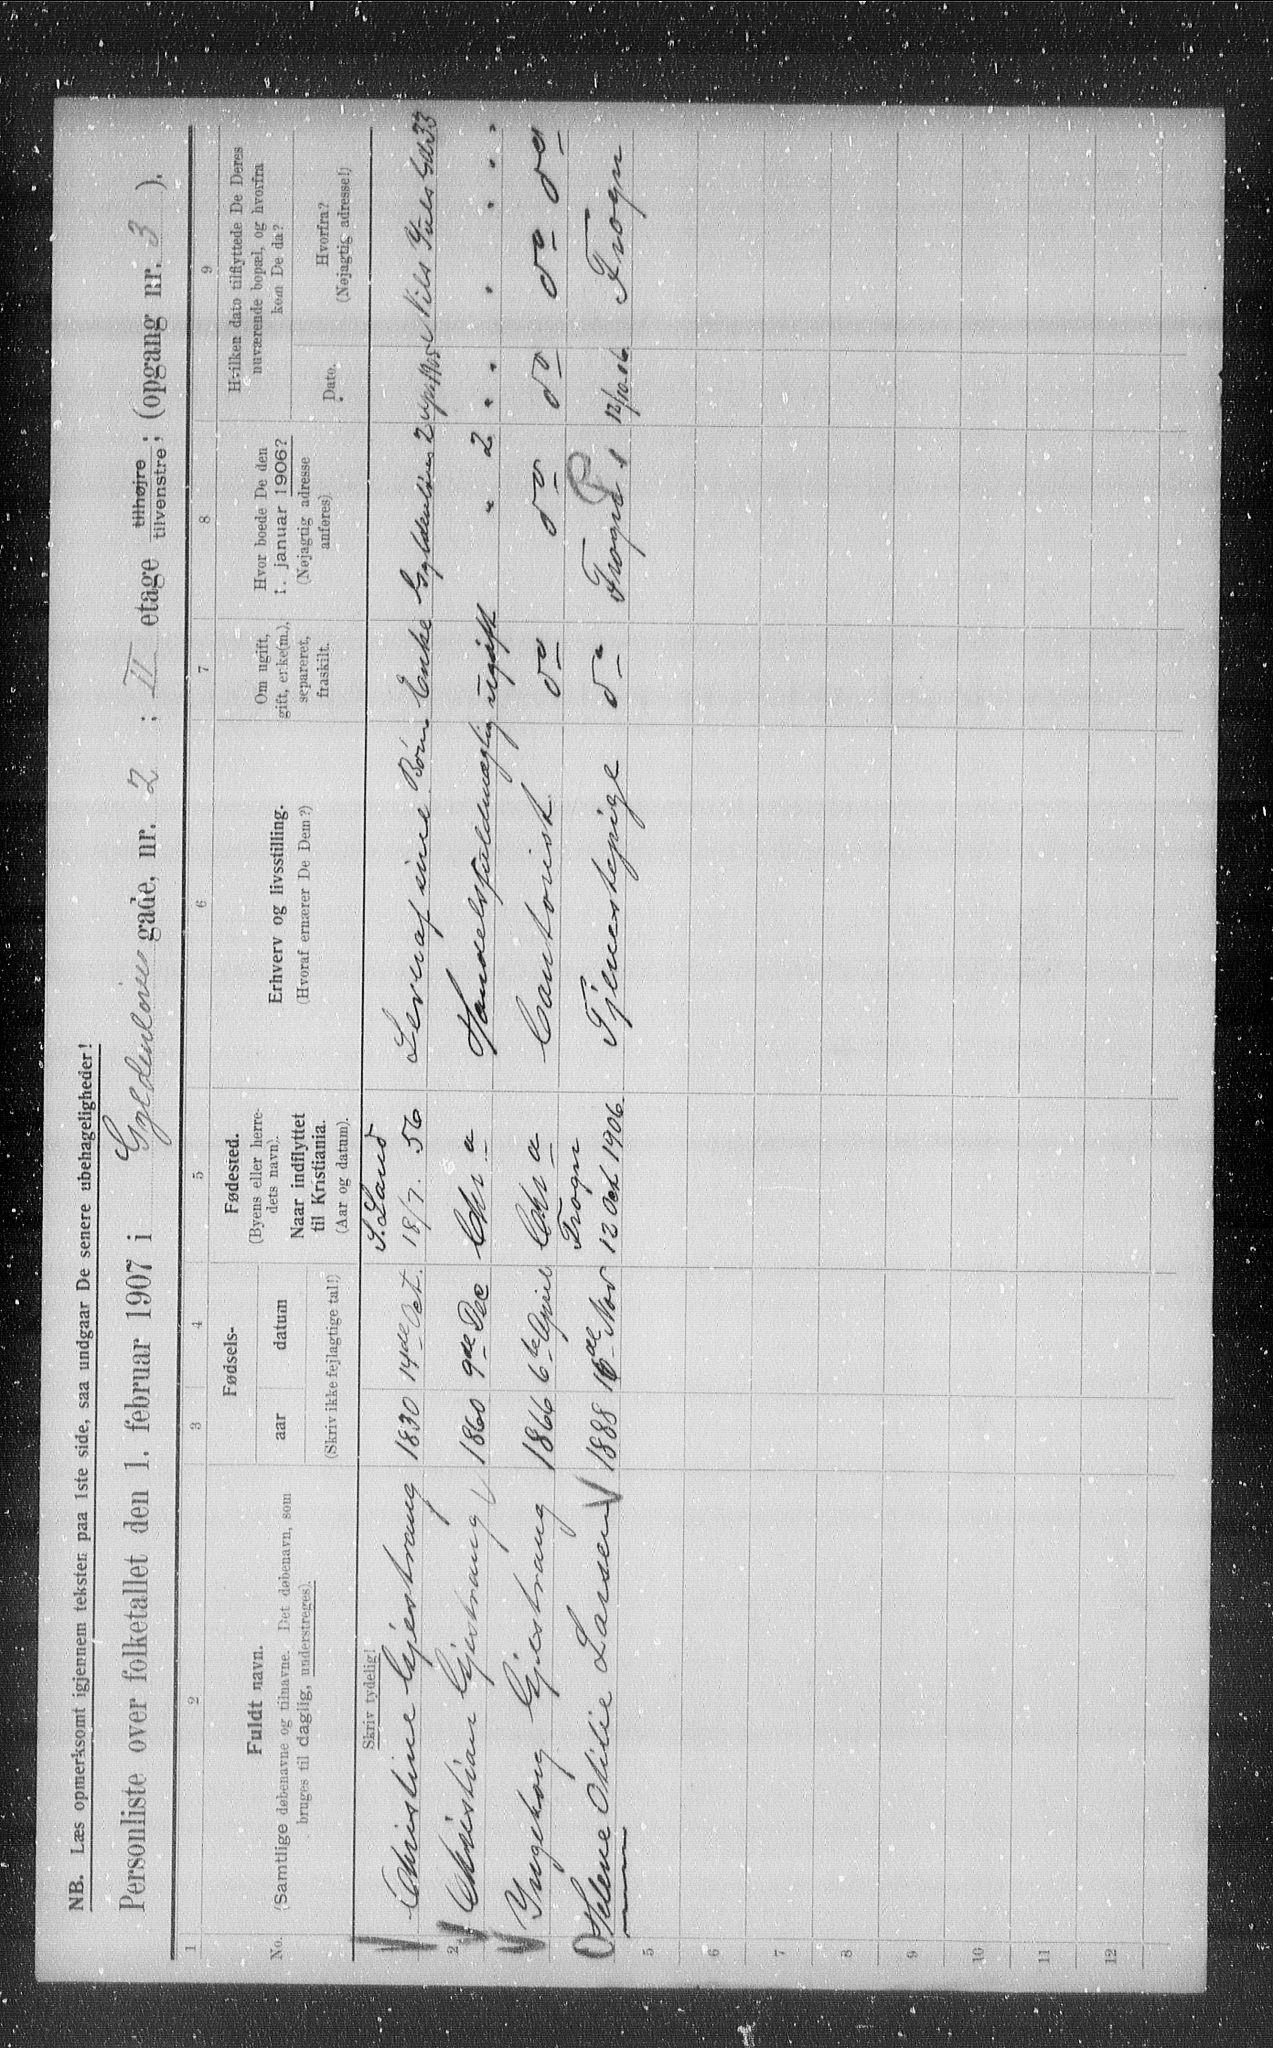 NB. Læs opmerksomt igjennem teksten paa 1ste side, saa undgaar De senere ubehageligheder!
Personliste over folketallet den 1. februar 1907 i Gyldenløves gade, nr. 2 ; II etage tilhøjre tilvenstre; (opgang nr. 3 ).
1 2 3 4 5 6 7 8 9
No.
Fuldt navn.
(Samtlige døbenavne og tilnavne. Det døbenavn, som
bruges til daglig, understreges).
Fødsels-
aar datum
(Skriv ikke fejlagtige tal!)
Fødested.
(Byens eller herre-
dets navn).
Naar indflyttet
til Kristiania.
(Aar og datum).
Erhverv og livsstilling.
(Hvoraf ernærer De Dem?)
Om ugift,
gift, enke(m.),
separeret,
fraskilt.
Hvor boede De den
1. januar 1906?
(Nøjagtig adresse
anføres)
Hvilken dato tilflyttede De Deres
nuværende bopæl, og hvorfra
kom De da?
Dato.
Hvorfra?
(Nøjagtig adresse!)
Skriv tydelig!
Christine Gjestrang 1830 14de Oct. S. Land 18/7. 56 Lever af sine Børn Enke Gyldenløves 2 Nils Juels Gd 33
2 Christian Gjestrang 1860 9de Dec Chr a Handelsfuldmægtig ugift " 2 " " " " " "
Ingeborg Gjestrang 1866 6te April Chr a Contorist do do do do do
Helene Otilie Larsen 1888 16de Nov Frogn 12 Oct 1906 Tjenestepige do Frogn 12/10.06 Frogn
5
6
7
8
9
10
11
12